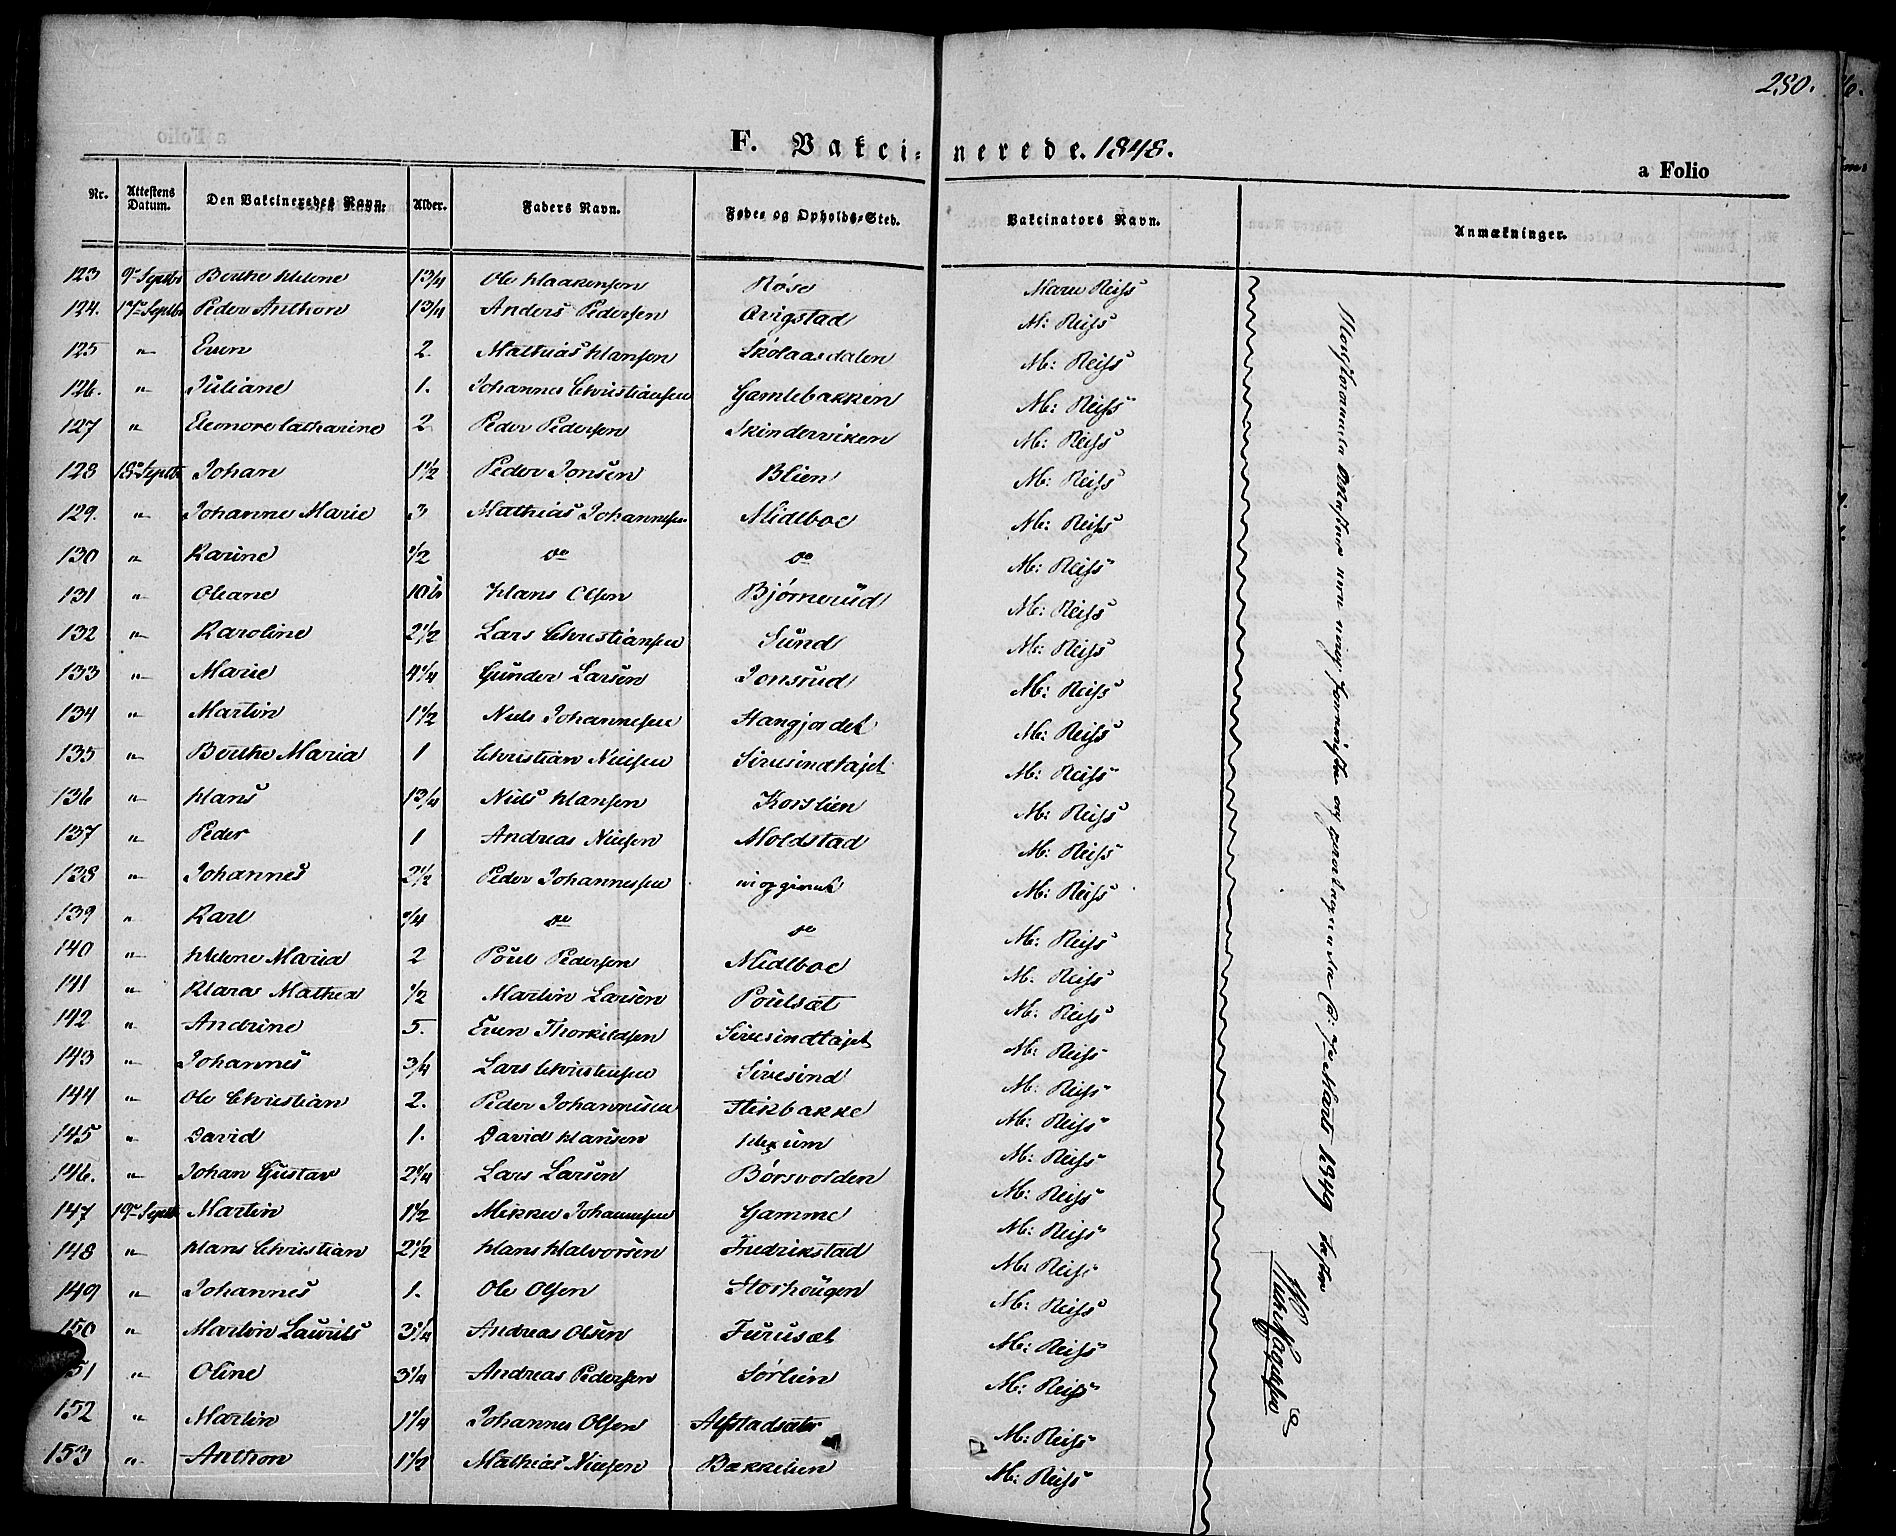 280.
F. Vakcinerede. 1848.
a Folio
Nr. | Attestens Datum. | Den Vakcineredes Navn. | Alder. | Faders Navn. | Føde- og Opholds-Sted. | Vakcinators Navn. | Anmærkninger.
123 | 9de Septbr | Berthe Helene | 1 3/4 | Ole Haakensen | Røse | Maren Reiss
124. | 17de Septbr | Peder Anthon | 1 3/4 | Anders Pedersen | Qvigstad | M: Reiss
125 | " | Even | 2. | Mathias Hansen | Skolaasdalen | M: Reiss
126. | " | Juliane | 1. | Johannes Christiansen | Gamlebakken | M: Reiss
127 | " | Eleonore Catharine | 2. | Peder Pedersen | Skinderviken | M: Reiss
128 | 18de Septbr | Johan | 1 1/2 | Peder Jonsen | Blien | M: Reiss
129. | " | Johanne Marie | 3 | Mathias Johannesen | Midlboe | M: Reiss
130 | " | Karine | 1/2 | do | do | M: Reiss
131 | " | Oleane | Hans Olsen | Bjørnerud | M: Reiss
132 | " | Karoline | 2 1/2 | Lars Christiansen | Sund | M: Reiss
133 | " | Marie | 4 1/4 | Gunder Larsen | Jonsrud | M: Reiss
134 | " | Martin | 1 1/2 | Niels Johannesen | Stangjordet | M: Reiss
135 | " | Berthe Maria | 1 | Christian Nielsen | Sivesindtajet | M: Reiss
136 | " | Hans | 1 3/4 | Niels Hansen | Korslien | M: Reiss
137 | " | Peder | 1 | Andreas Nielsen | Moldstad | M: Reiss
138 | " | Johannes | 2 1/2 | Peder Johannessen | M: Reiss
139 | " | Karl | 3/4 | do | do | M: Reiss
140 | " | Helene Maria | 2 | Poul Pedersen | Midlboe | M: Reiss
141 | " | Klara Mathea | 1/2 | Martin Larsen | Poulsæt | M: Reiss
142 | " | Andrine | 5. | Even Thorkildsen | Sivesindtajet | M: Reiss
143 | " | Johannes | 3/4 | Lars Christensen | Sivesind | M: Reiss
144 | " | Ole Christian | 2. | Peder Johannesen | Stikbakke | M: Reiss
145 | " | David | 1. | David Hansen | Hexum | M: Reiss
146. | " | Johan Gustav | 2 1/4 | Lars Larsen | Børsvolden | M: Reiss
147 | 19de Septbr | Martin | 1 1/2 | Mikkel Johannesen | Gamme | M: Reiss
148 | " | Hans Christian | 2 1/2 | Hans Halvorsen | Fredrikstad | M: Reiss
149 | " | Johannes | 1. | Ole Olsen | Storhougen | M: Reiss
150 | " | Martin Laurits | 3 1/4 | Andreas Olsen | Furusæt | M: Reiss
151 | " | Oline | 3 1/4 | Andreas Pedersen | Sørlien | M: Reiss
152 | " | Martin | 1 1/4 | Johannes Olsen | Alfstadsæter | M: Reiss
153 | " | Anthon | 1 1/2 | Mathias Nielsen | Bækkelien | M: Reiss
1849